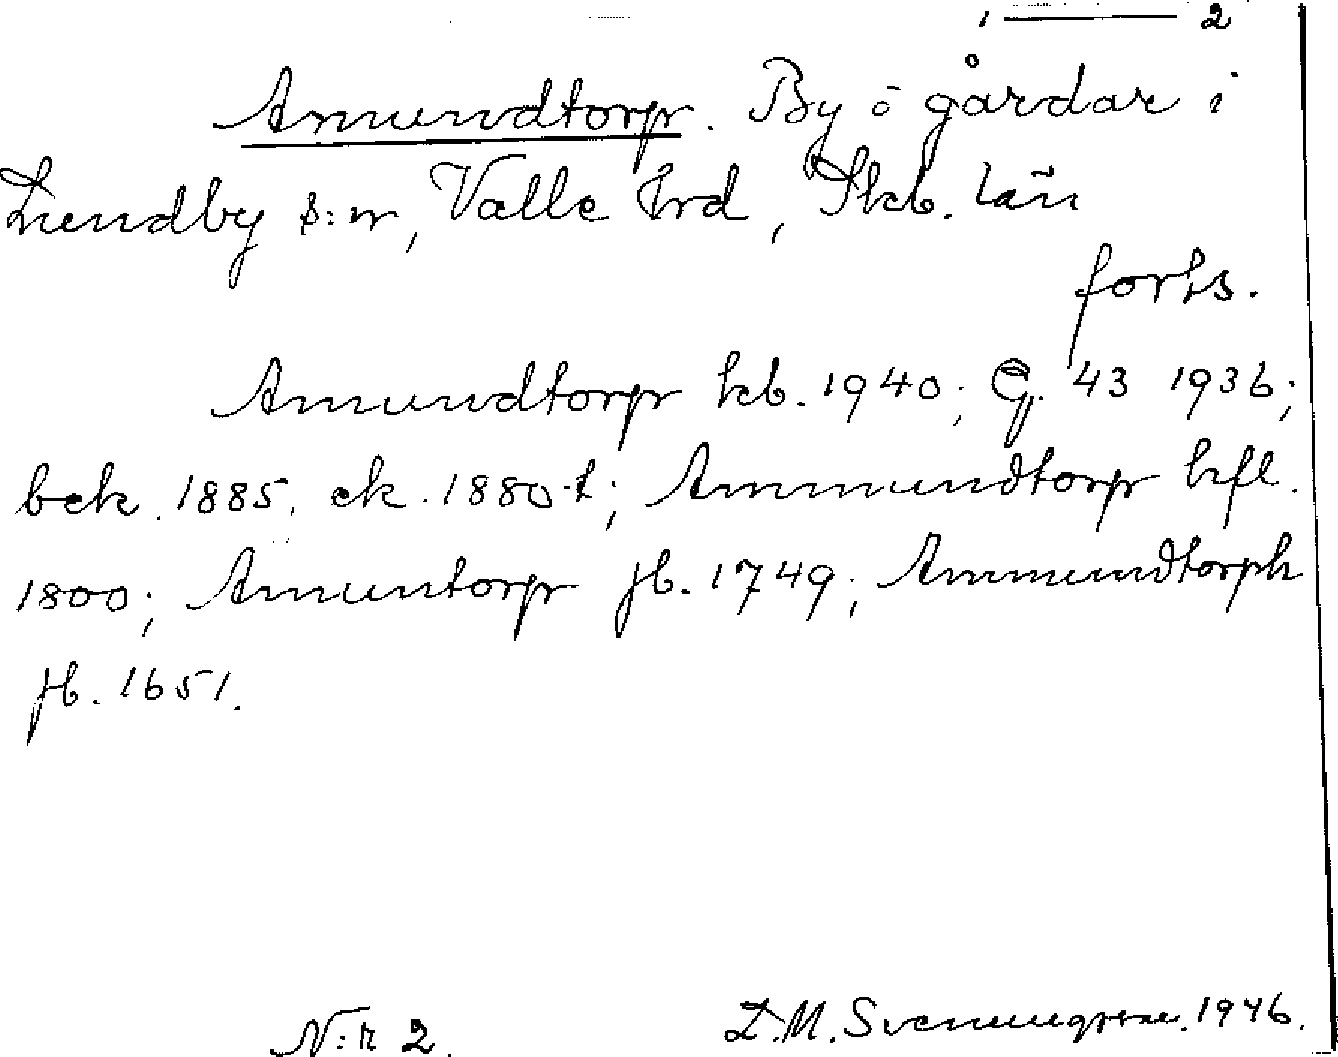 1 ——— 2
Amundtorp. By o gårdar i
Lundby s:n, Valle hrd, Skb. län
forts.
Amundtorp kb. 1940; G. 43 1936;
bek. 1885; ek. 1880-t; Ammundtorp hfl.
1800; Amuntorp jb. 1749; Ammundtorph
jb. 1651.
N:r 2. D.M. Svenungsson. 1946.